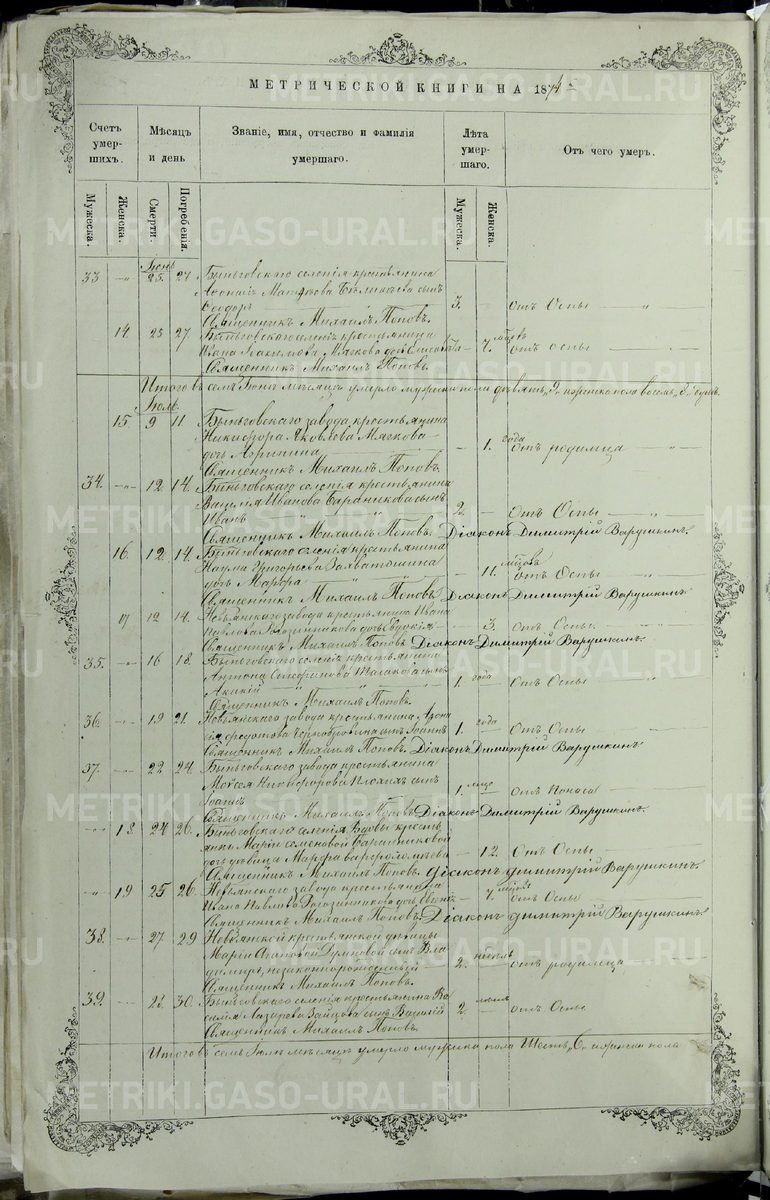 МЕТРИЧЕСКОЙ КНИГИ НА 187
Счетъ умер- шихъ.
Мѣсяцъ и день
Званіе, имя, отчество и фамилія умершаго.
Лѣта умер- шаго.
Отъ чего умеръ.
Мужеска. Женска. Смерти. Погребенія. Мужеска. Женска.
Іюнь
33 25 27 Быньговскаго селенія крестьянина
сынъ
Ѳеодоръ 3. отъ Оспы
Священникъ Михаилъ Поповъ.
14. 25 27 Быньговскаго селенія крестьянина
Ивана Мягкова дочь 7. отъ оспы
Священникъ Михаилъ Поповъ.
Итого въ семъ Іюнѣ мѣсяцѣ умерло мужска пола девять, 9, женска пола восемь, 8, душъ.
Іюль
15. 9 11 Быньговскаго завода крестьянина
Никифора Яковлева Мягкова
дочь Агрипина 1. года отъ родимца
Священникъ Михаилъ Поповъ.
34. 12 14. Быньговскаго селенія крестьянина
Василія Иванова Баранникова сынъ
Иванъ 2. Отъ Оспы
Священникъ Михаилъ Поповъ. Діаконъ Димитрій Варушкинъ.
16. 12 14. Быньговскаго селенія крестьянина
Наума Григорьева
дочь Марѳа 11. отъ Оспы
Священникъ Михаилъ Поповъ Діаконъ Димитрій Варушкинъ
17 12 14. Невьянскаго завода крестьянина Ивана
Павлова дочь Евдокія 3. отъ Оспы.
Священникъ Михаилъ Поповъ Діаконъ Димитрій Варушкинъ.
35. 16 18. Быньговскаго селенія крестьянина
Антона сынъ
Акакій 1. года отъ Оспы
Священникъ Михаилъ Поповъ.
36. 19 21. Невьянскаго завода крестьянина
сынъ Іоаннъ 1. года Отъ Оспы
Священникъ Михаилъ Поповъ. Діаконъ Димитрій Варушкинъ.
37. 22 24. Быньговскаго завода крестьянина
Моисея Никифорова Плохихъ сынъ
Іоаннъ 1. отъ Поноса
Священникъ Михаилъ Поповъ Діаконъ Димитрій Варушкинъ.
18. 24 26. Быньговскаго селенія вдовы кресть-
янки Маріи Семеновой Баранниковой
дочь дѣвица Марѳа Варѳоломѣева 12. Отъ Оспы
Священникъ Михаилъ Поповъ. Діаконъ Димитрій Варушкинъ.
19 25 26. Невьянскаго завода крестьянина
Ивана Павлова дочь 7. отъ Оспы
Священникъ Михаилъ Поповъ Діаконъ Димитрій Варушкинъ.
38. 27 29 Невьянской крестьянской дѣвицы
Маріи Агаповой сынъ Вла-
димиръ, незаконнорожденный 2. отъ родимца
Священникъ Михаилъ Поповъ.
39. 30. Быньговскаго селенія крестьянина Ва-
силія Лазарева Зайцова сынъ 2. отъ Оспы
Священникъ Михаилъ Поповъ.
Итого въ семъ Іюлѣ мѣсяцѣ умерло мужска пола Шесть, 6, женска пола
METRIKI.GASO-URAL.RU